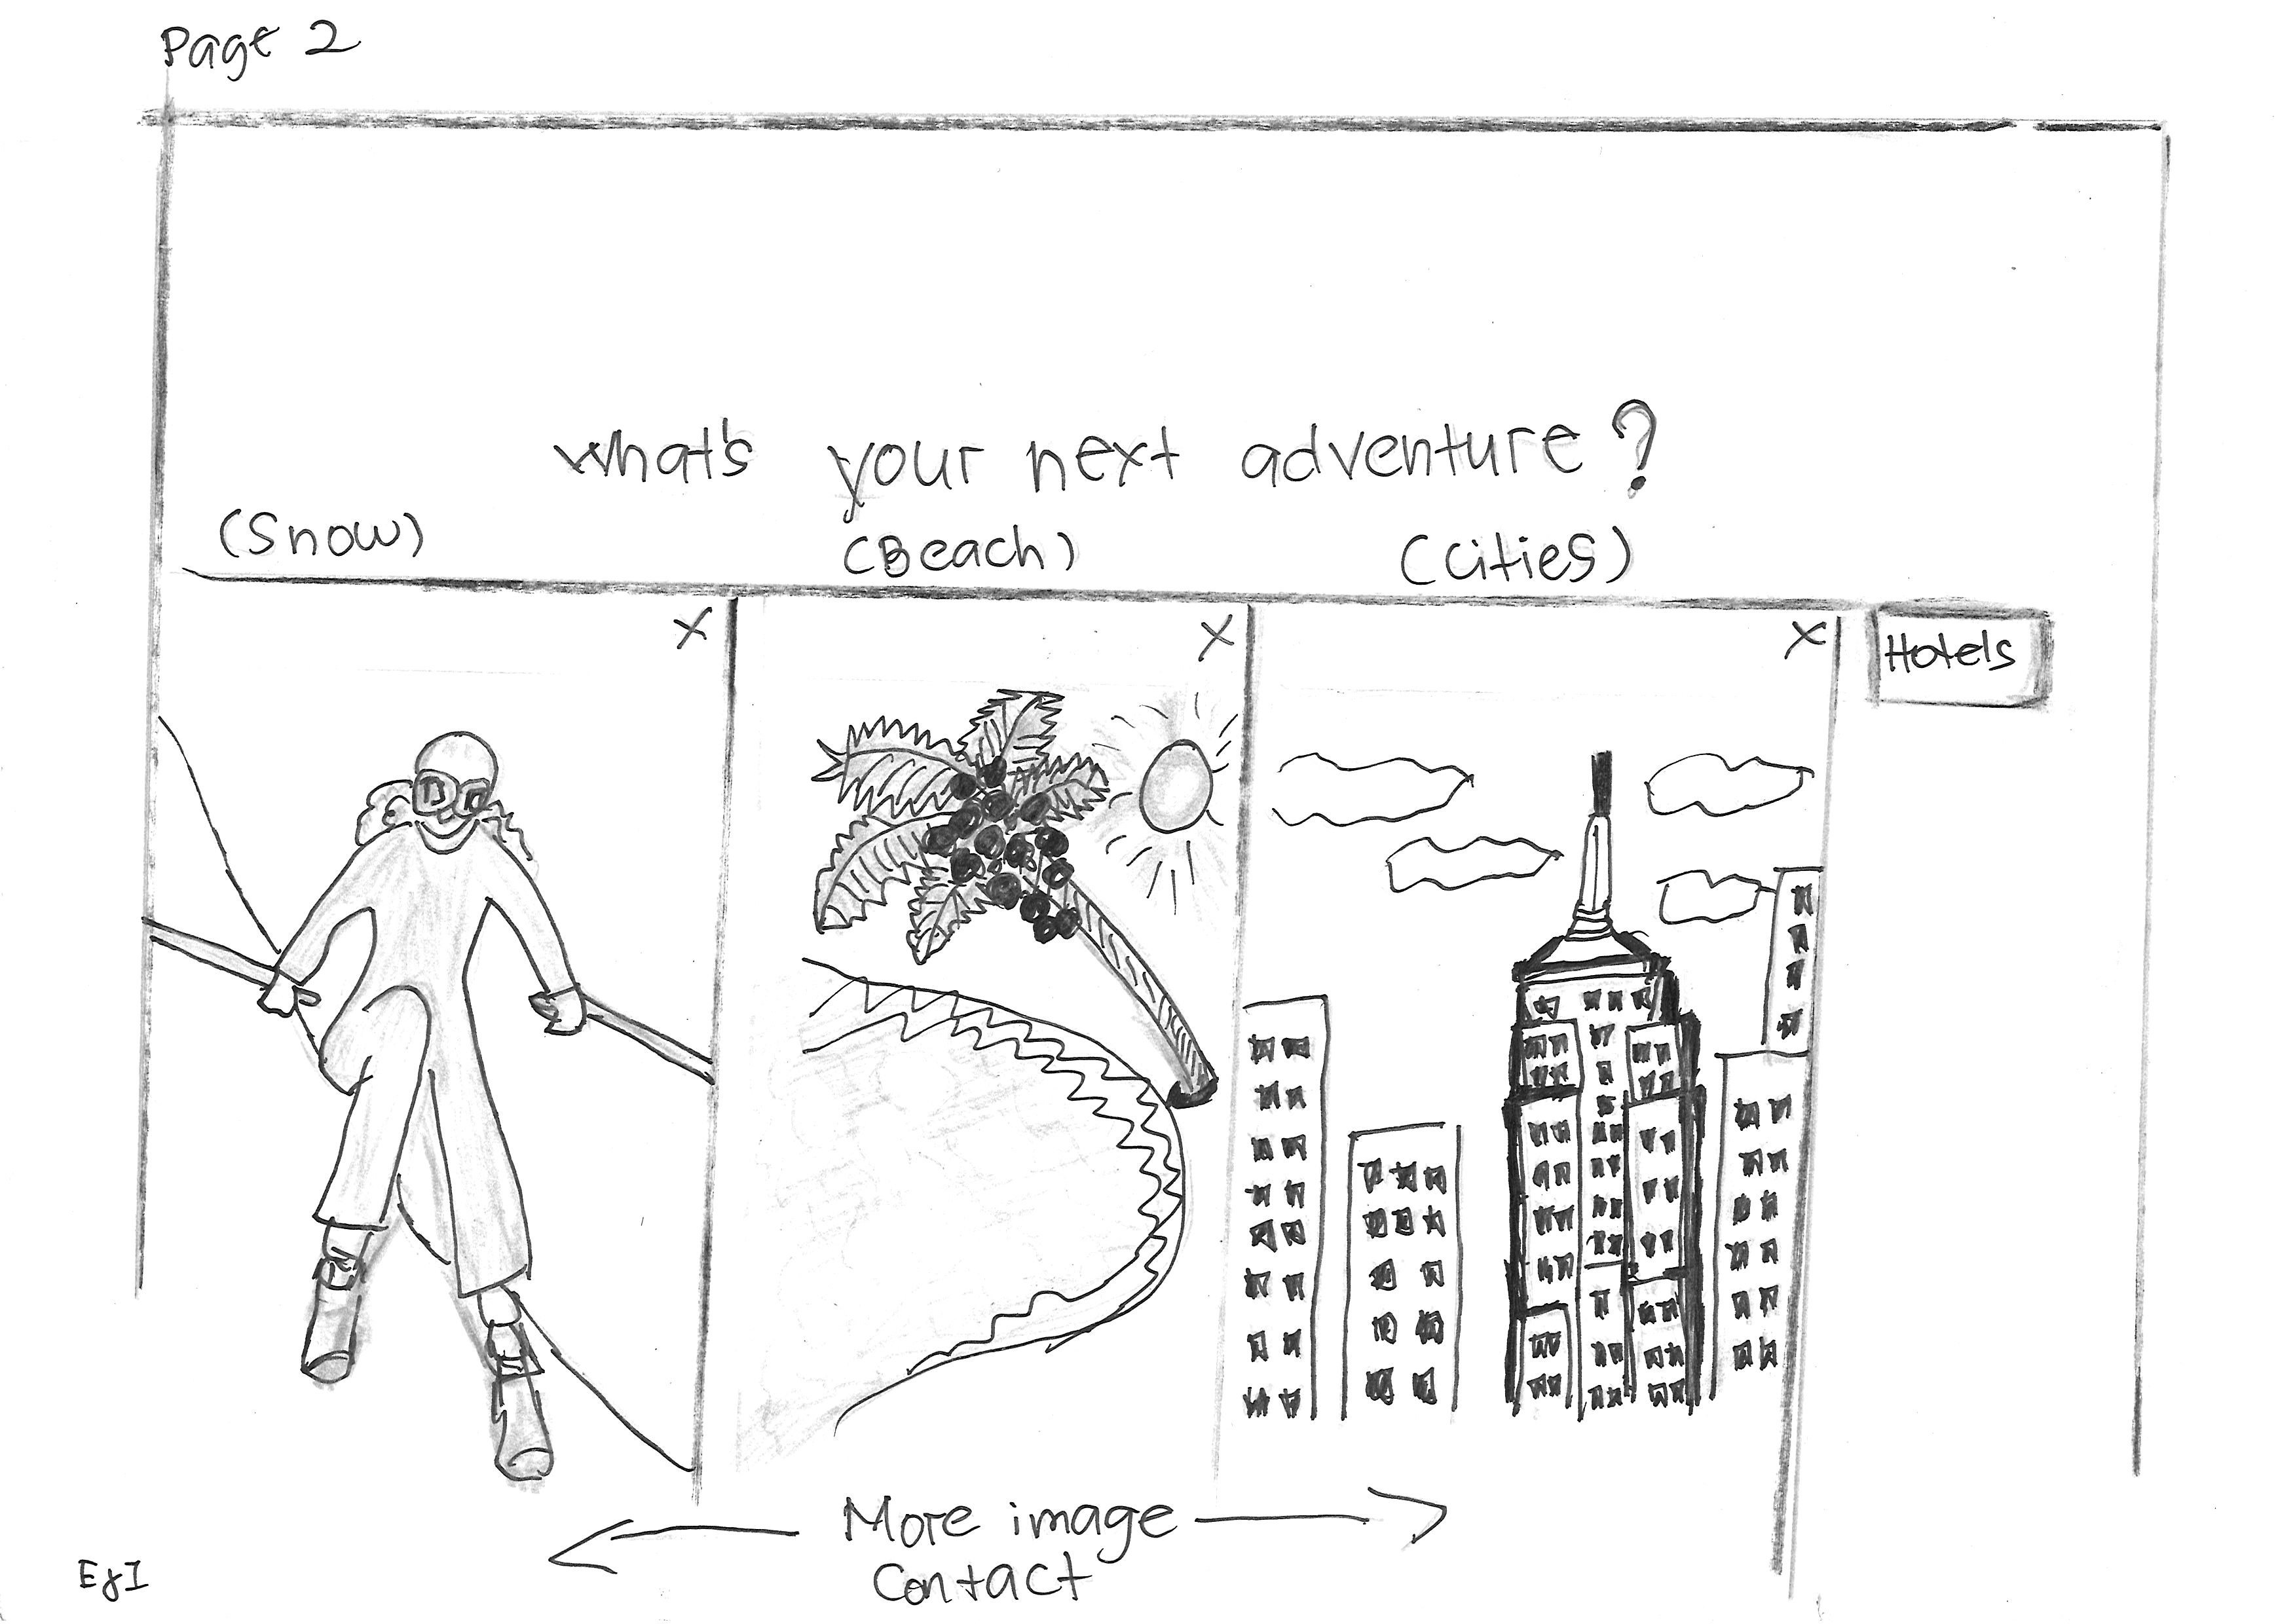 Page 2
what's your next adventure?
(Snow) (Beach) (Cities)
X X X
Hotels
More image
Contact